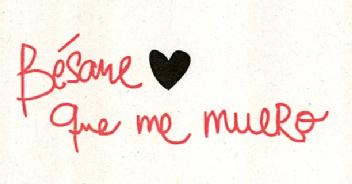 Bésame
que me muero